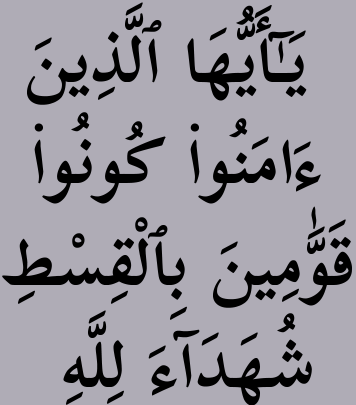 يَـٰٓأَيُّهَا ٱلَّذِينَ
ءَامَنُوا۟ كُونُوا۟
قَوَّٰمِينَ بِٱلْقِسْطِ
شُهَدَآءَ لِلَّهِ